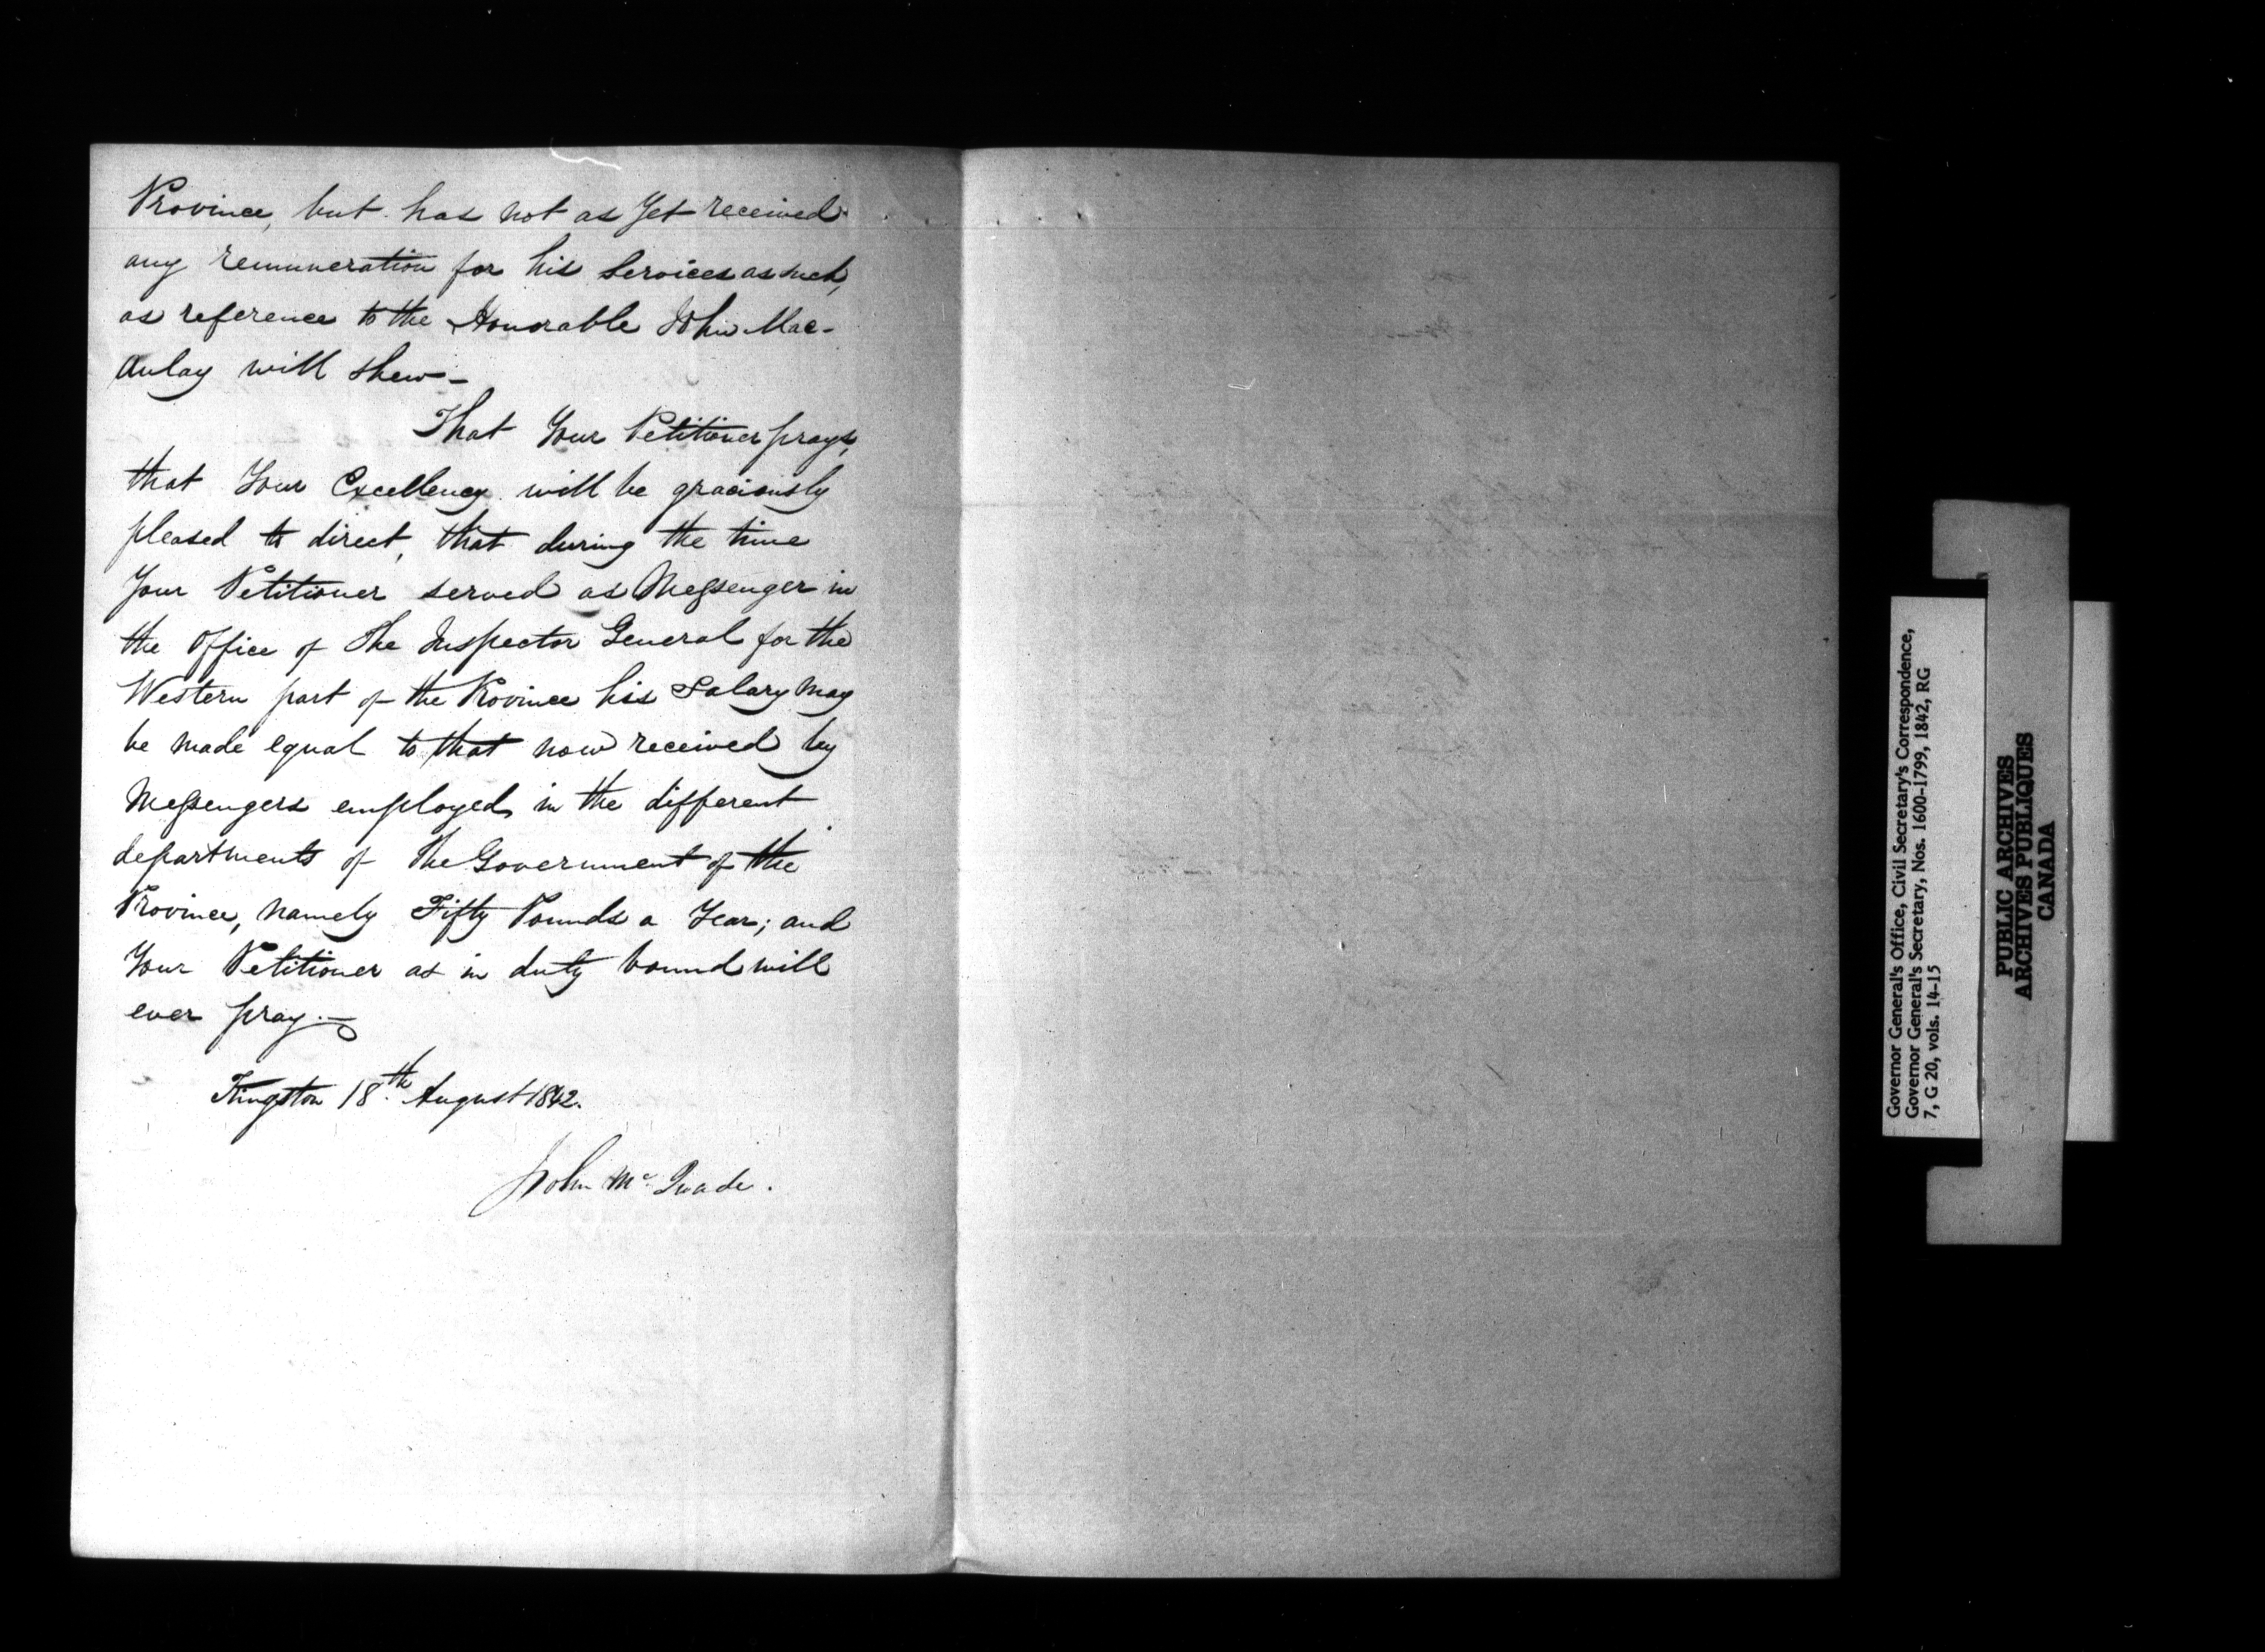 Province, but has not as Yet received
any remuneration for his Services as such,
as reference to the Honorable John Mac-
Aulay will shew—
That Your Petitioner prays,
that Your Excellency will be graciously
pleased to direct, that during the time
Your Petitioner served as Messenger in
the Office of The Inspector General for the
Western part of the Province his Salary may
be made equal to that now received by
Messengers employed in the different
departments of The Government of the
Province, namely Fifty Pounds a Year; and
Your Petitioner as in duty bound will
ever pray.—
Kingston 18th August 1842.
John Mc Quade.
Governor General's Office, Civil Secretary's Correspondence,
Governor General's Secretary, Nos. 1600-1799, 1842, RG
7, G 20, vols. 14-15
PUBLIC ARCHIVES
ARCHIVES PUBLIQUES
CANADA